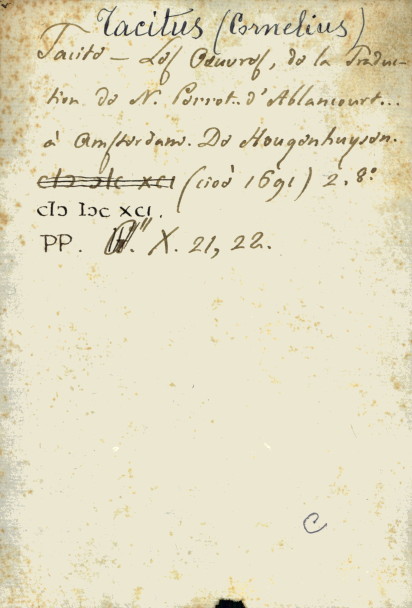 Tacitus (Cornelius)
Tacite – Les Oeuvres, de la Traduc-
tion de N. Perrot d'Ablancourt...
à Amsterdam. De Hougenhuysen.
cIɔ ɔIc xcı (cioè 1691) 2. 8°
cIɔ Iɔc xcı.
PP. X. 21, 22.
C